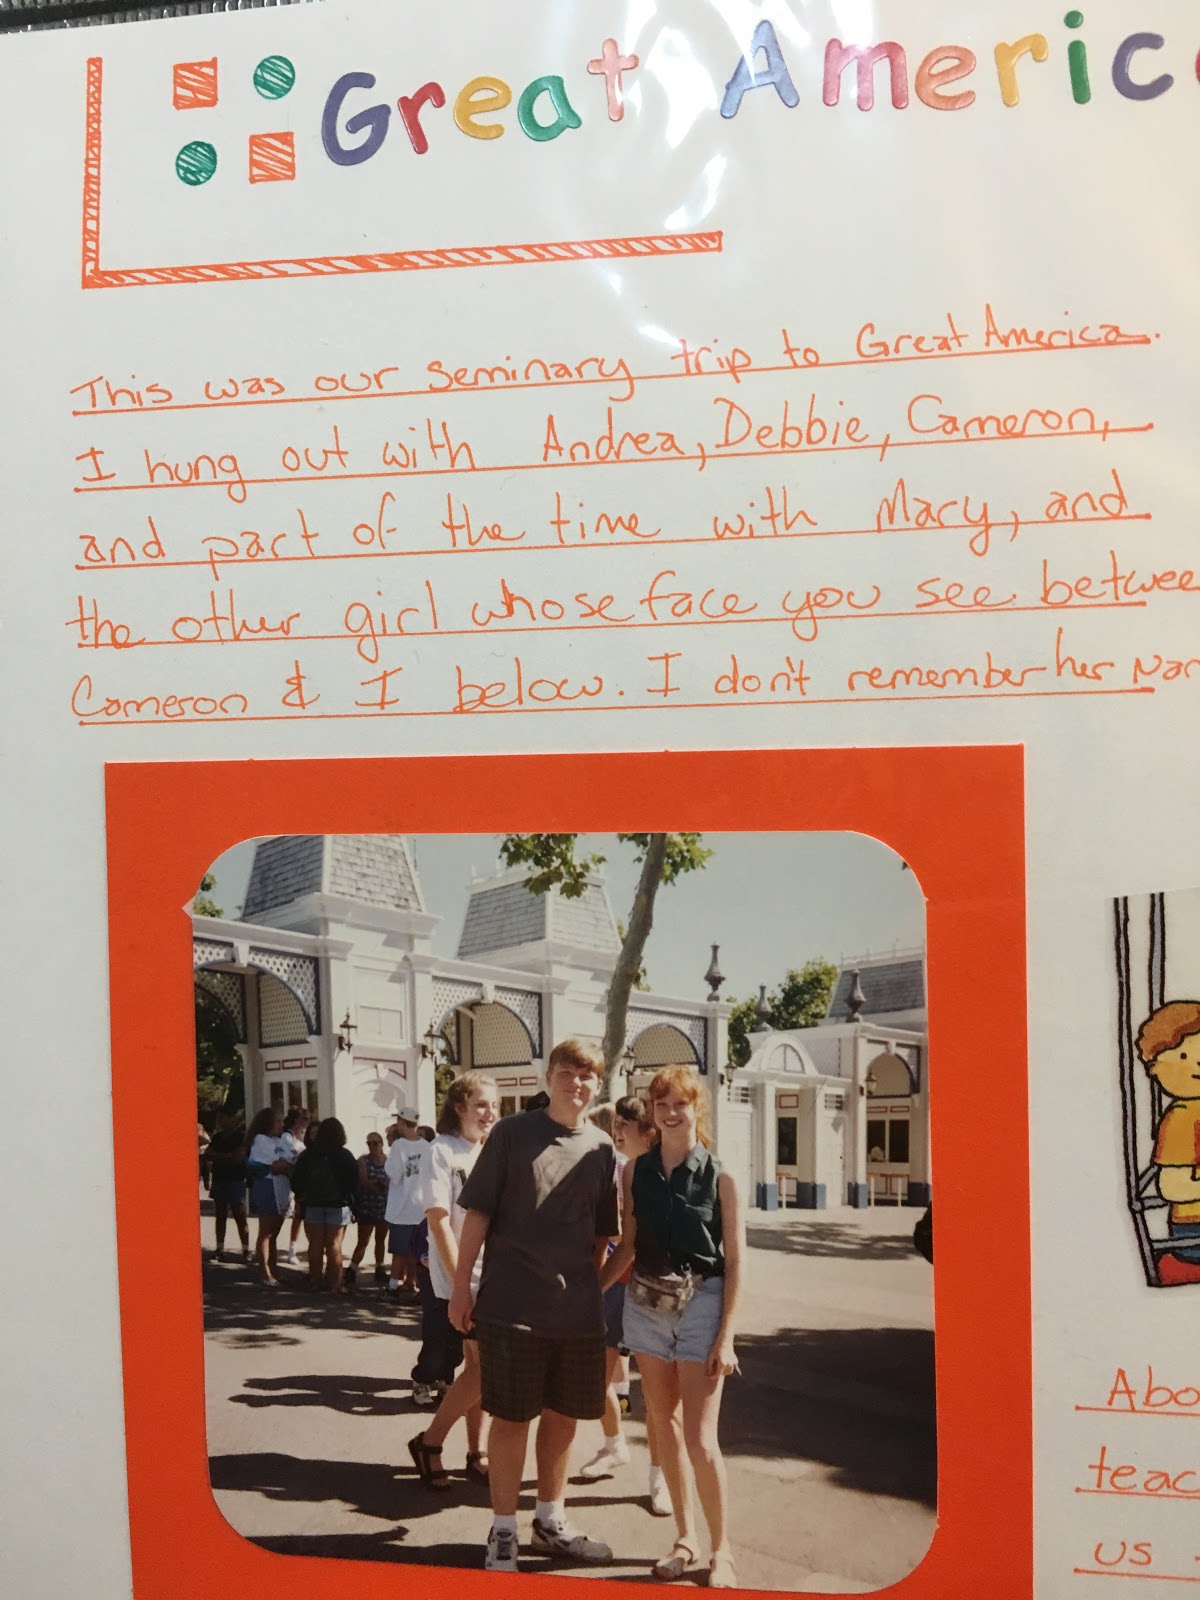 Great Americ
This was our seminary trip to Great America.
I hung out with Andrea, Debbie, Cameron,
and part of the time with Mary, and
the other girl whose face you see betwee
Cameron & I below. I don't remember her Nar
Abo
teac
us